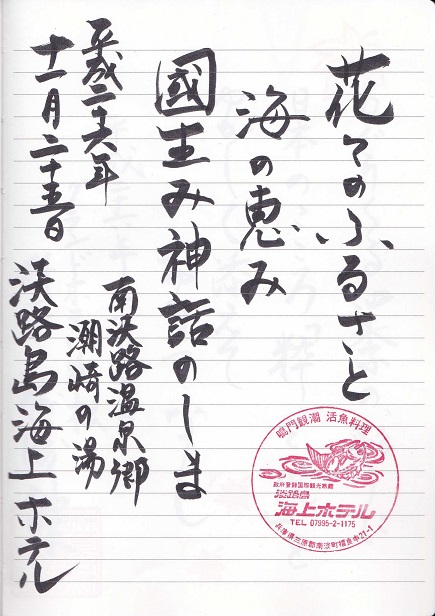 花々のふるさと
海の恵み
國生み神話のしま
南淡路温泉郷
潮崎の湯
淡路島海上ホテル
平成二十六年
十一月二十五日
鳴門観潮 活魚料理
政府登録国際観光旅館
淡路島
海上ホテル
TEL 07995-2-1175
兵庫県三原郡南淡町福良丙21-1